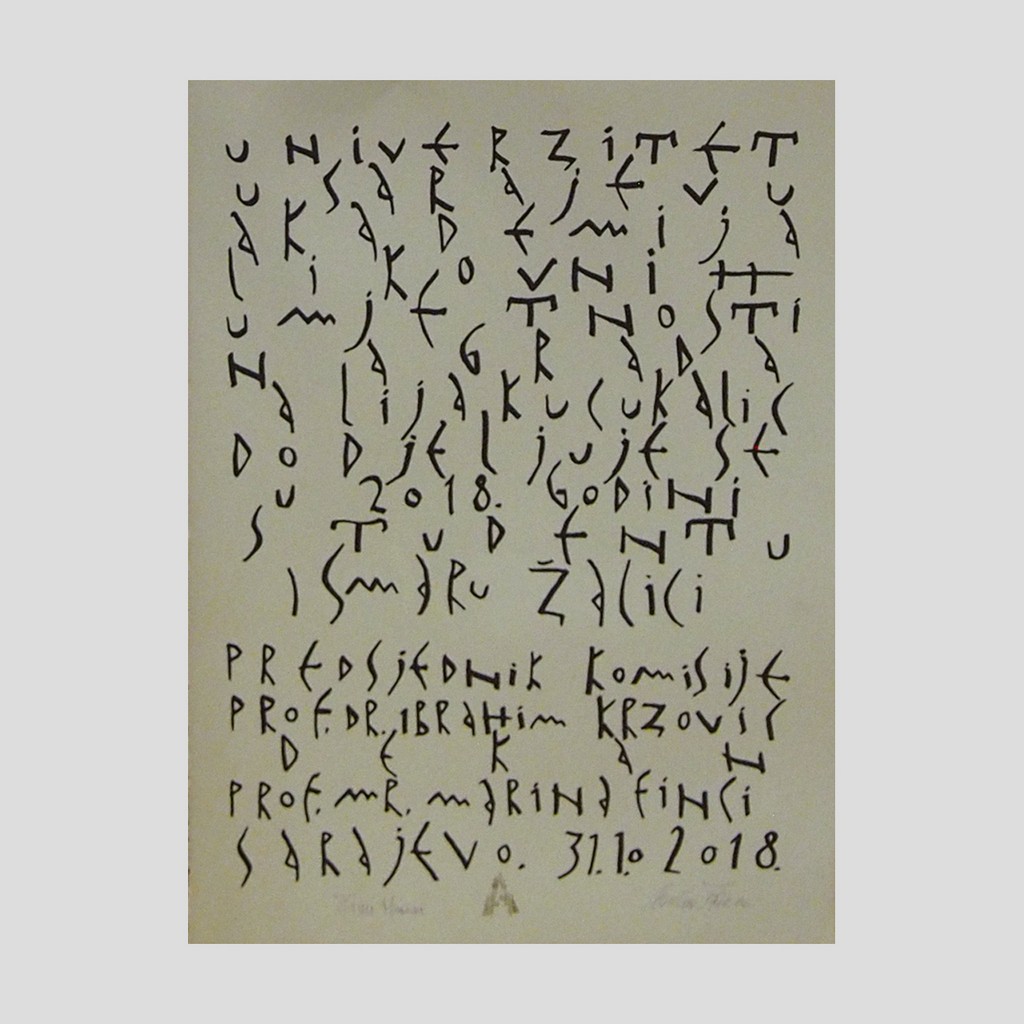 UNIVERZITET
U SARAJEVU
AKADEMIJA
LIKOVNIH
UMJETNOSTI
NAGRADA
ALIJA KUCUKALIC
DODJELJUJE SE
U 2018. GODINI
STUDENTU
ISMARU ŽALICI
PREDSJEDNIK KOMISIJE
PROF. DR. IBRAHIM KRZOVIC
DEKAN
PROF. MR. MARINA FINCI
SARAJEVO. 31.10 2018.
A